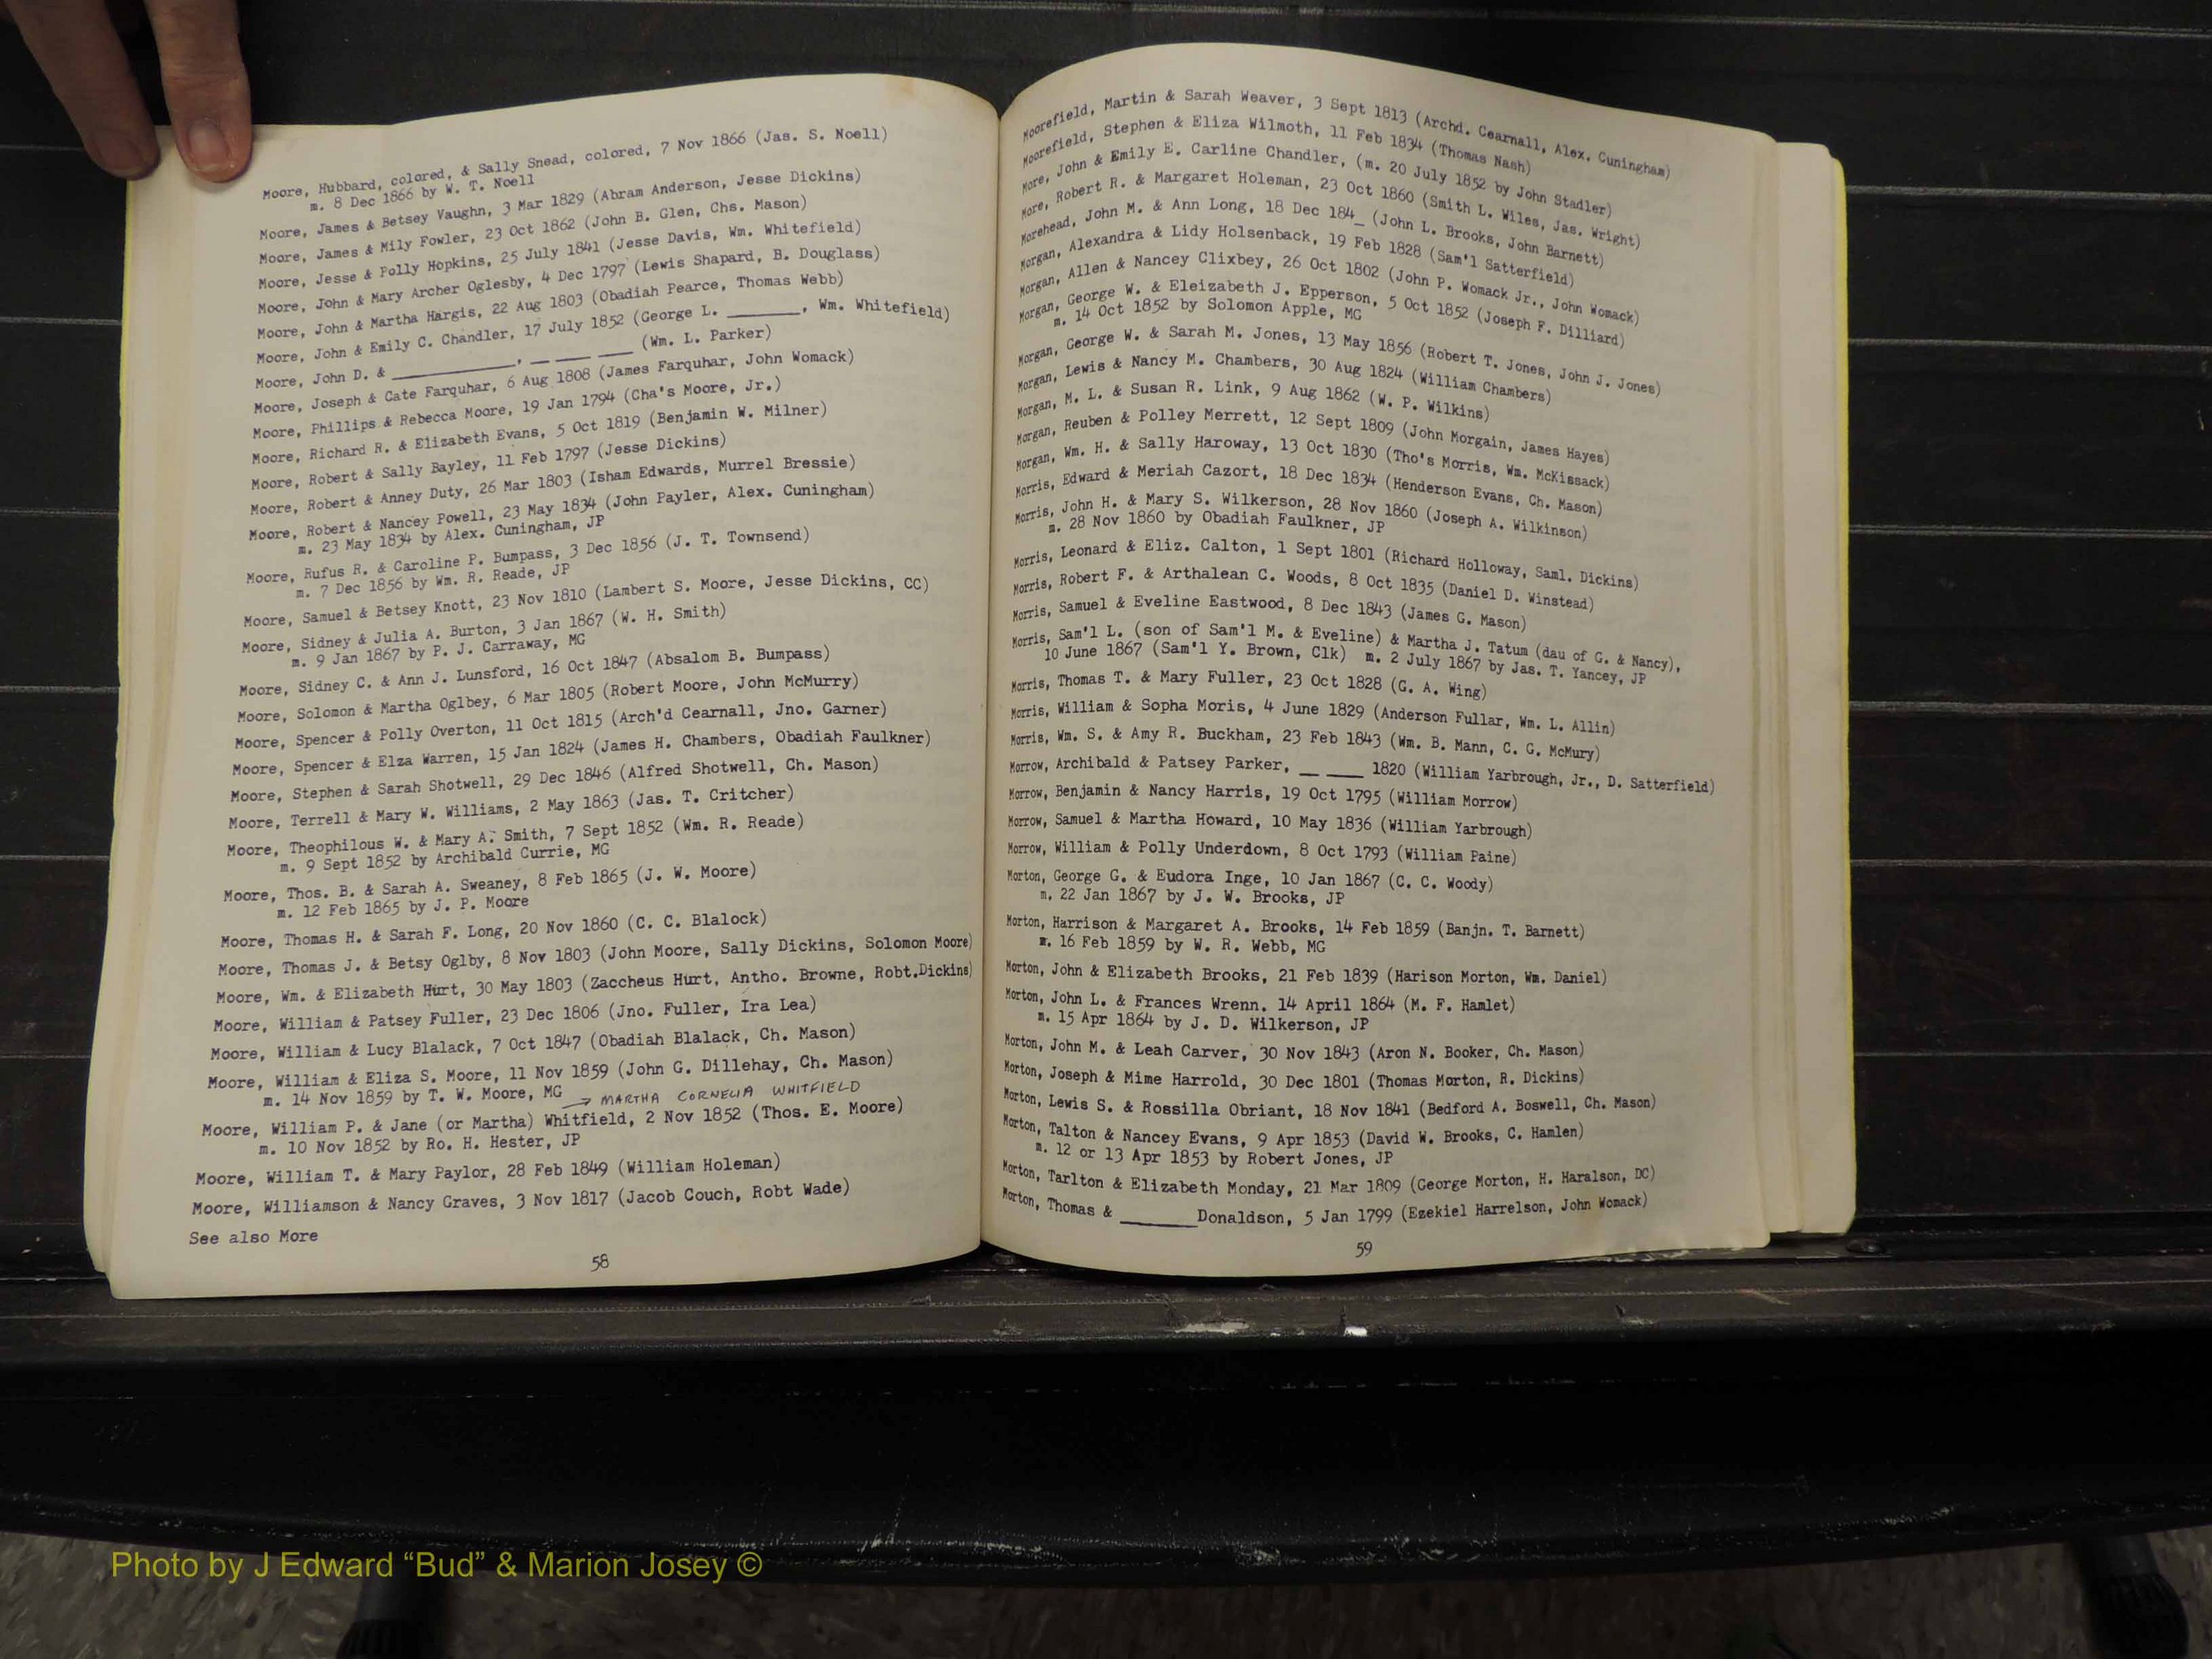 Moore, Hubbard, colored, & Sally Snead, colored, 7 Nov 1866 (Jas. S. Noell)
m. 8 Dec 1866 by W. T. Noell
Moore, James & Betsey Vaughn, 3 Mar 1829 (Abram Anderson, Jesse Dickins)
Moore, James & Mily Fowler, 23 Oct 1862 (John B. Glen, Chs. Mason)
Moore, Jesse & Polly Hopkins, 25 July 1841 (Jesse Davis, Wm. Whitefield)
Moore, John & Mary Archer Oglesby, 4 Dec 1797 (Lewis Shapard, B. Douglass)
Moore, John & Martha Hargis, 22 Aug 1803 (Obadiah Pearce, Thomas Webb)
Moore, John & Emily C. Chandler, 17 July 1852 (George L. _______, Wm. Whitefield)
Moore, John D. & ___________, __ ___ ___ (Wm. L. Parker)
Moore, Joseph & Cate Farquhar, 6 Aug 1808 (James Farquhar, John Womack)
Moore, Phillips & Rebecca Moore, 19 Jan 1794 (Cha's Moore, Jr.)
Moore, Richard R. & Elizabeth Evans, 5 Oct 1819 (Benjamin W. Milner)
Moore, Robert & Sally Bayley, 11 Feb 1797 (Jesse Dickins)
Moore, Robert & Anney Duty, 26 Mar 1803 (Isham Edwards, Murrel Bressie)
Moore, Robert & Nancey Powell, 23 May 1834 (John Payler, Alex. Cuningham)
m. 23 May 1834 by Alex. Cuningham, JP
Moore, Rufus R. & Caroline P. Bumpass, 3 Dec 1856 (J. T. Townsend)
m. 7 Dec 1856 by Wm. R. Reade, JP
Moore, Samuel & Betsey Knott, 23 Nov 1810 (Lambert S. Moore, Jesse Dickins, CC)
Moore, Sidney & Julia A. Burton, 3 Jan 1867 (W. H. Smith)
m. 9 Jan 1867 by P. J. Carraway, MG
Moore, Sidney C. & Ann J. Lunsford, 16 Oct 1847 (Absalom B. Bumpass)
Moore, Solomon & Martha Oglbey, 6 Mar 1805 (Robert Moore, John McMurry)
Moore, Spencer & Polly Overton, 11 Oct 1815 (Arch'd Cearnall, Jno. Garner)
Moore, Spencer & Elza Warren, 15 Jan 1824 (James H. Chambers, Obadiah Faulkner)
Moore, Stephen & Sarah Shotwell, 29 Dec 1846 (Alfred Shotwell, Ch. Mason)
Moore, Terrell & Mary W. Williams, 2 May 1863 (Jas. T. Critcher)
Moore, Theophilous W. & Mary A. Smith, 7 Sept 1852 (Wm. R. Reade)
m. 9 Sept 1852 by Archibald Currie, MG
Moore, Thos. B. & Sarah A. Sweaney, 8 Feb 1865 (J. W. Moore)
m. 12 Feb 1865 by J. P. Moore
Moore, Thomas H. & Sarah F. Long, 20 Nov 1860 (C. C. Blalock)
Moore, Thomas J. & Betsy Oglby, 8 Nov 1803 (John Moore, Sally Dickins, Solomon Moore)
Moore, Wm. & Elizabeth Hurt, 30 May 1803 (Zaccheus Hurt, Antho. Browne, Robt.Dickins)
Moore, William & Patsey Fuller, 23 Dec 1806 (Jno. Fuller, Ira Lea)
Moore, William & Lucy Blalack, 7 Oct 1847 (Obadiah Blalack, Ch. Mason)
Moore, William & Eliza S. Moore, 11 Nov 1859 (John G. Dillehay, Ch. Mason)
m. 14 Nov 1859 by T. W. Moore, MG → MARTHA CORNELIA WHITFIELD
Moore, William P. & Jane (or Martha) Whitfield, 2 Nov 1852 (Thos. E. Moore)
m. 10 Nov 1852 by Ro. H. Hester, JP
Moore, William T. & Mary Paylor, 28 Feb 1849 (William Holeman)
Moore, Williamson & Nancy Graves, 3 Nov 1817 (Jacob Couch, Robt Wade)
See also More
58
Moorefield, Martin & Sarah Weaver, 3 Sept 1813 (Archd. Cearnall, Alex. Cuningham)
Moorefield, Stephen & Eliza Wilmoth, 11 Feb 1834 (Thomas Nash)
More, John & Emily E. Carline Chandler, (m. 20 July 1852 by John Stadler)
More, Robert R. & Margaret Holeman, 23 Oct 1860 (Smith L. Wiles, Jas. Wright)
Morehead, John M. & Ann Long, 18 Dec 184_ (John L. Brooks, John Barnett)
Morgan, Alexandra & Lidy Holsenback, 19 Feb 1828 (Sam'l Satterfield)
Morgan, Allen & Nancey Clixbey, 26 Oct 1802 (John P. Womack Jr., John Womack)
Morgan, George W. & Eleizabeth J. Epperson, 5 Oct 1852 (Joseph F. Dilliard)
m. 14 Oct 1852 by Solomon Apple, MG
Morgan, George W. & Sarah M. Jones, 13 May 1856 (Robert T. Jones, John J. Jones)
Morgan, Lewis & Nancy M. Chambers, 30 Aug 1824 (William Chambers)
Morgan, M. L. & Susan R. Link, 9 Aug 1862 (W. P. Wilkins)
Morgan, Reuben & Polley Merrett, 12 Sept 1809 (John Morgain, James Hayes)
Morgan, Wm. H. & Sally Haroway, 13 Oct 1830 (Tho's Morris, Wm. McKissack)
Morris, Edward & Meriah Cazort, 18 Dec 1834 (Henderson Evans, Ch. Mason)
Morris, John H. & Mary S. Wilkerson, 28 Nov 1860 (Joseph A. Wilkinson)
m. 28 Nov 1860 by Obadiah Faulkner, JP
Morris, Leonard & Eliz. Calton, 1 Sept 1801 (Richard Holloway, Saml. Dickins)
Morris, Robert F. & Arthalean C. Woods, 8 Oct 1835 (Daniel D. Winstead)
Morris, Samuel & Eveline Eastwood, 8 Dec 1843 (James G. Mason)
Morris, Sam'l L. (son of Sam'l M. & Eveline) & Martha J. Tatum (dau of G. & Nancy),
10 June 1867 (Sam'l Y. Brown, Clk) m. 2 July 1867 by Jas. T. Yancey, JP
Morris, Thomas T. & Mary Fuller, 23 Oct 1828 (G. A. Wing)
Morris, William & Sopha Moris, 4 June 1829 (Anderson Fullar, Wm. L. Allin)
Morris, Wm. S. & Amy R. Buckham, 23 Feb 1843 (Wm. B. Mann, C. G. McMury)
Morrow, Archibald & Patsey Parker, __ ___ 1820 (William Yarbrough, Jr., D. Satterfield)
Morrow, Benjamin & Nancy Harris, 19 Oct 1795 (William Morrow)
Morrow, Samuel & Martha Howard, 10 May 1836 (William Yarbrough)
Morrow, William & Polly Underdown, 8 Oct 1793 (William Paine)
Morton, George G. & Eudora Inge, 10 Jan 1867 (C. C. Woody)
m. 22 Jan 1867 by J. W. Brooks, JP
Morton, Harrison & Margaret A. Brooks, 14 Feb 1859 (Banjn. T. Barnett)
m. 16 Feb 1859 by W. R. Webb, MG
Morton, John & Elizabeth Brooks, 21 Feb 1839 (Harison Morton, Wm. Daniel)
Morton, John L. & Frances Wrenn, 14 April 1864 (M. F. Hamlet)
m. 15 Apr 1864 by J. D. Wilkerson, JP
Morton, John M. & Leah Carver, 30 Nov 1843 (Aron N. Booker, Ch. Mason)
Morton, Joseph & Mime Harrold, 30 Dec 1801 (Thomas Morton, R. Dickins)
Morton, Lewis S. & Rossilla Obriant, 18 Nov 1841 (Bedford A. Boswell, Ch. Mason)
Morton, Talton & Nancey Evans, 9 Apr 1853 (David W. Brooks, C. Hamlen)
m. 12 or 13 Apr 1853 by Robert Jones, JP
Morton, Tarlton & Elizabeth Monday, 21 Mar 1809 (George Morton, H. Haralson, DC)
Morton, Thomas & _______Donaldson, 5 Jan 1799 (Ezekiel Harrelson, John Womack)
59
Photo by J Edward “Bud” & Marion Josey ©